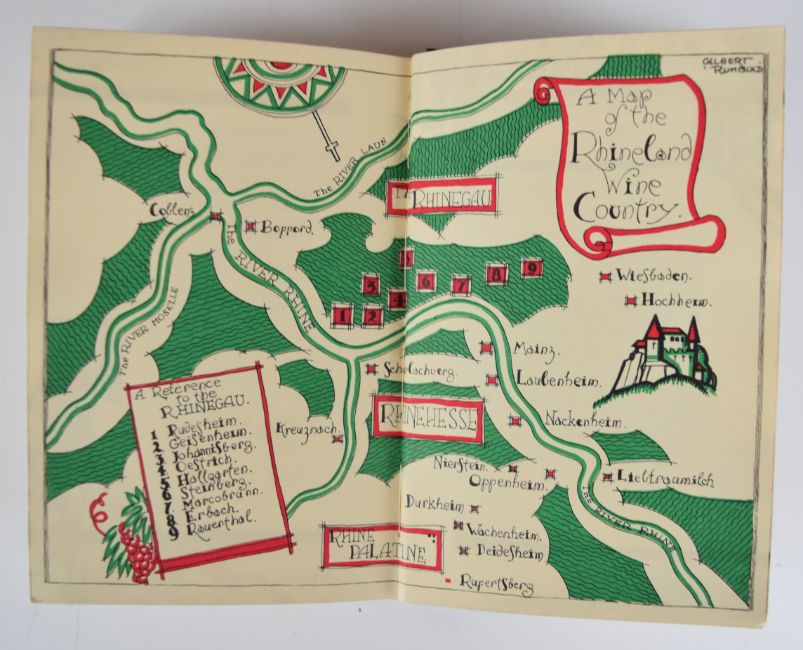 GILBERT
RUMBOLD
A Map
of the
Rhineland
Wine
Country.
The RIVER LAUN
RHINEGAU
Coblenz
Boppord.
THE RIVER RHINE
The RIVER MOSELLE
Wiesbaden.
Hochheim.
5
3
6
7
8
9
4
1
2
Mainz.
Laubenheim.
RHINEHESSE
Nackenheim.
Kreuznach.
Nierstein.
Oppenheim.
Liebfraumilch
Durkheim
THE RIVER RHINE
Wachenheim.
Deidesheim
RHINE
PALATINE"
Rupertsberg
A Reference
to the
RHINEGAU.
1 Rudesheim.
2 Geisenheim.
3 Johannisberg.
4 Oestrich.
5 Hallgarten.
6 Steinberg.
7 Marcobrunn.
8 Erbach.
9 Rauenthal.